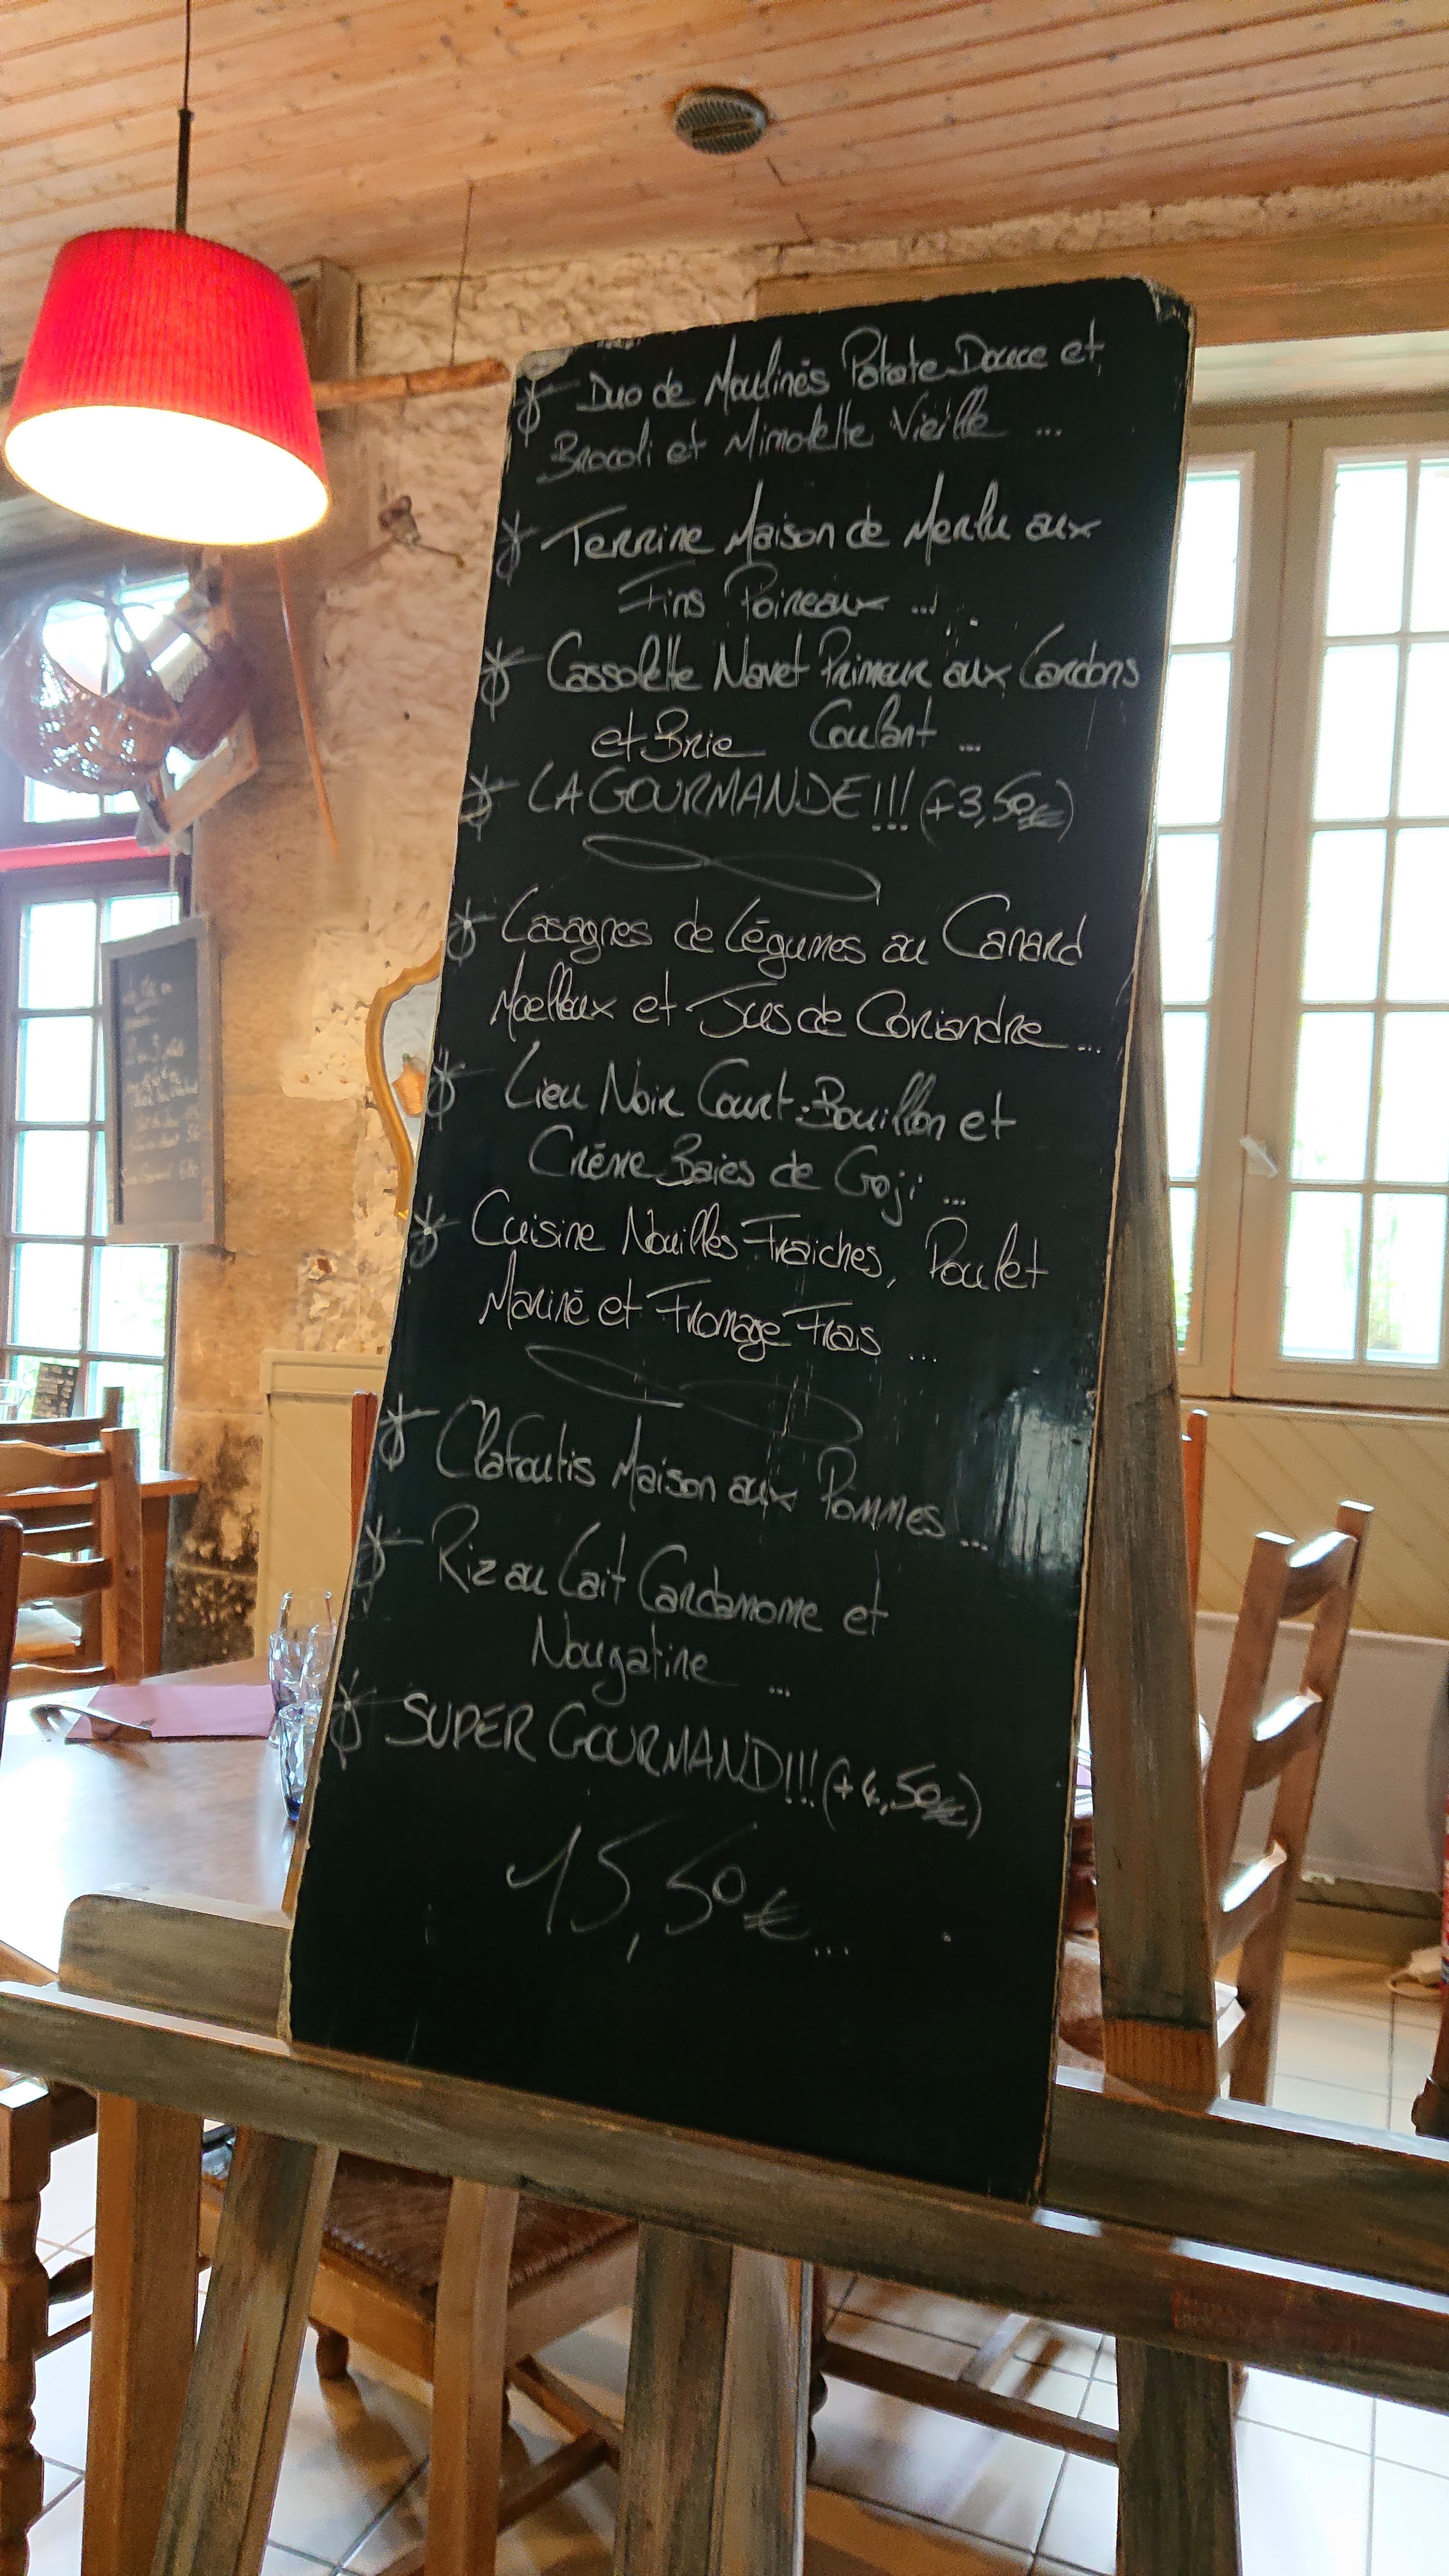 Duo de Moulinés Patate Douce et
Brocoli et Mimolette Vieille ...
Terrine Maison de Merlu aux
Fins Poireaux ...
Cassolette Navet Primeur aux Lardons
et Brie Coulant ...
LA GOURMANDE!!! (+3,50€)
Lasagnes de Légumes au Canard
Moelleux et Jus de Coriandre ...
Lieu Noir Court-Bouillon et
Crème Baies de Goji ...
Cuisine Nouilles Fraiches, Poulet
Mariné et Fromage Frais ...
Clafoutis Maison aux Pommes ...
Riz au Lait Cardamome et
Nougatine ...
SUPER GOURMAND!!!
15,50€ ...